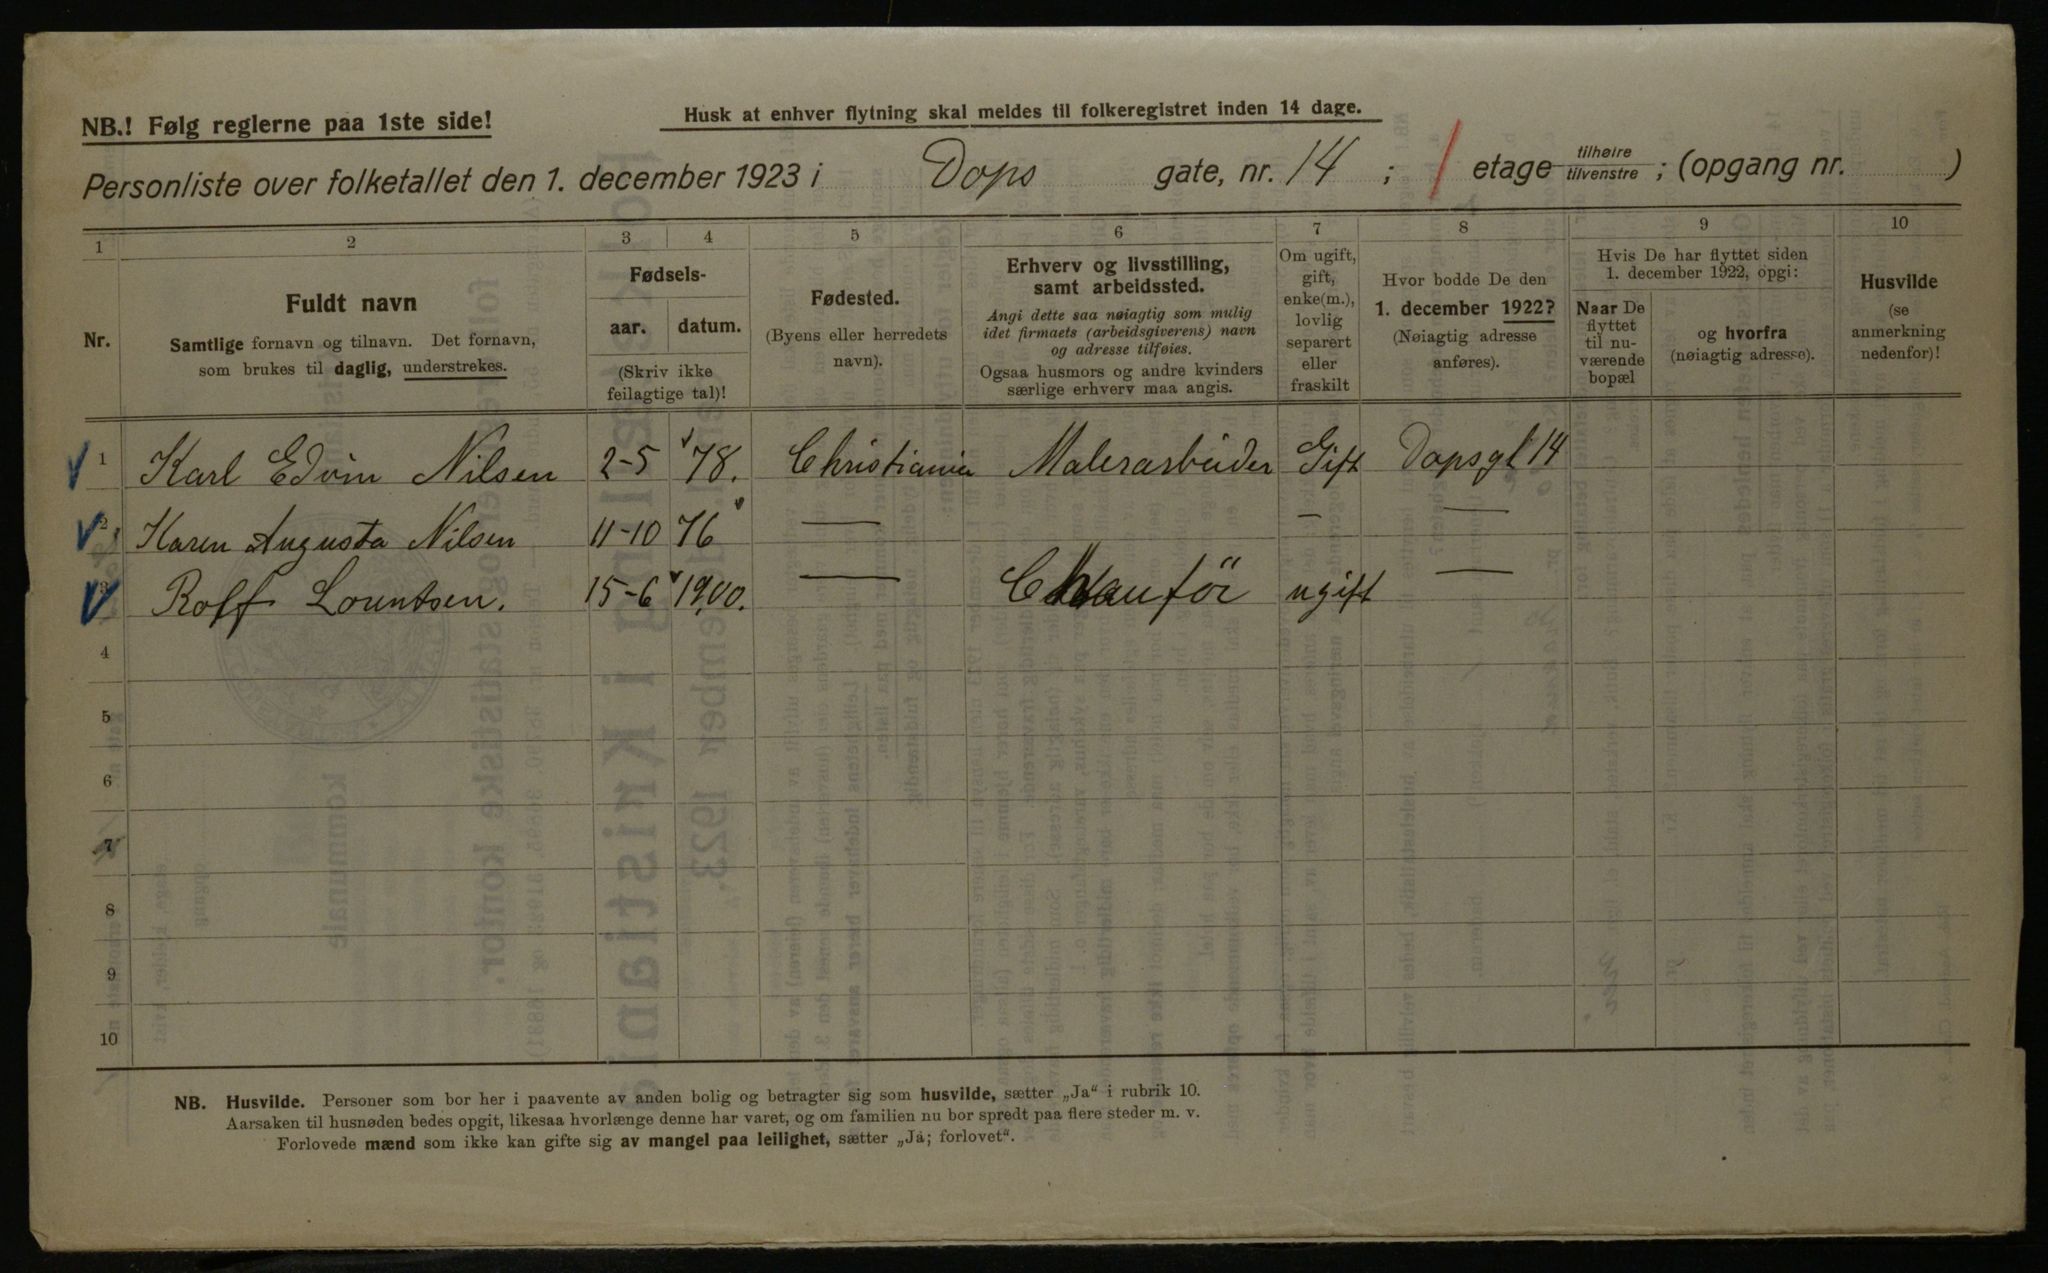 NB.! Følg reglerne paa 1ste side!
Husk at enhver flytning skal meldes til folkeregistret inden 14 dage.
Personliste over folketallet den 1. december 1923 i Dops gate, nr. 14 ; 1 etage tilhøire tilvenstre ; (opgang nr. )
1 2 3 4 5 6 7 8 9 10
Nr.
Fuldt navn
Samtlige fornavn og tilnavn. Det fornavn,
som brukes til daglig, understrekes.
Fødsels-
aar. datum.
(Skriv ikke
feilagtige tal)!
Fødested.
(Byens eller herredets
navn).
Erhverv og livsstilling,
samt arbeidssted.
Angi dette saa nøiagtig som mulig
idet firmaets (arbeidsgiverens) navn
og adresse tilføies.
Ogsaa husmors og andre kvinders
særlige erhverv maa angis.
Om ugift,
gift,
enke(m.),
lovlig
separert
eller
fraskilt
Hvor bodde De den
1. december 1922?
(Nøiagtig adresse
anføres).
Hvis De har flyttet siden
1. december 1922, opgi:
Naar De
flyttet
til nu-
værende
bopæl
og hvorfra
(nøiagtig adresse).
Husvilde
(se
anmerkning
nedenfor)!
1 Karl Edvin Nilsen 2-5 78. Christiania Malerarbeider Gift Dopsgt 14
2 Karen Augusta Nilsen 11-10 76 — — —
3 Rolf Lorentsen. 15-6 1900. — Chauför ugift —
4
5
6
7
8
9
10
NB. Husvilde. Personer som bor her i paavente av anden bolig og betragter sig som husvilde, sætter „Ja“ i rubrik 10.
Aarsaken til husnøden bedes opgit, likesaa hvorlænge denne har varet, og om familien nu bor spredt paa flere steder m. v.
Forlovede mænd som ikke kan gifte sig av mangel paa leilighet, sætter „Ja; forlovet“.